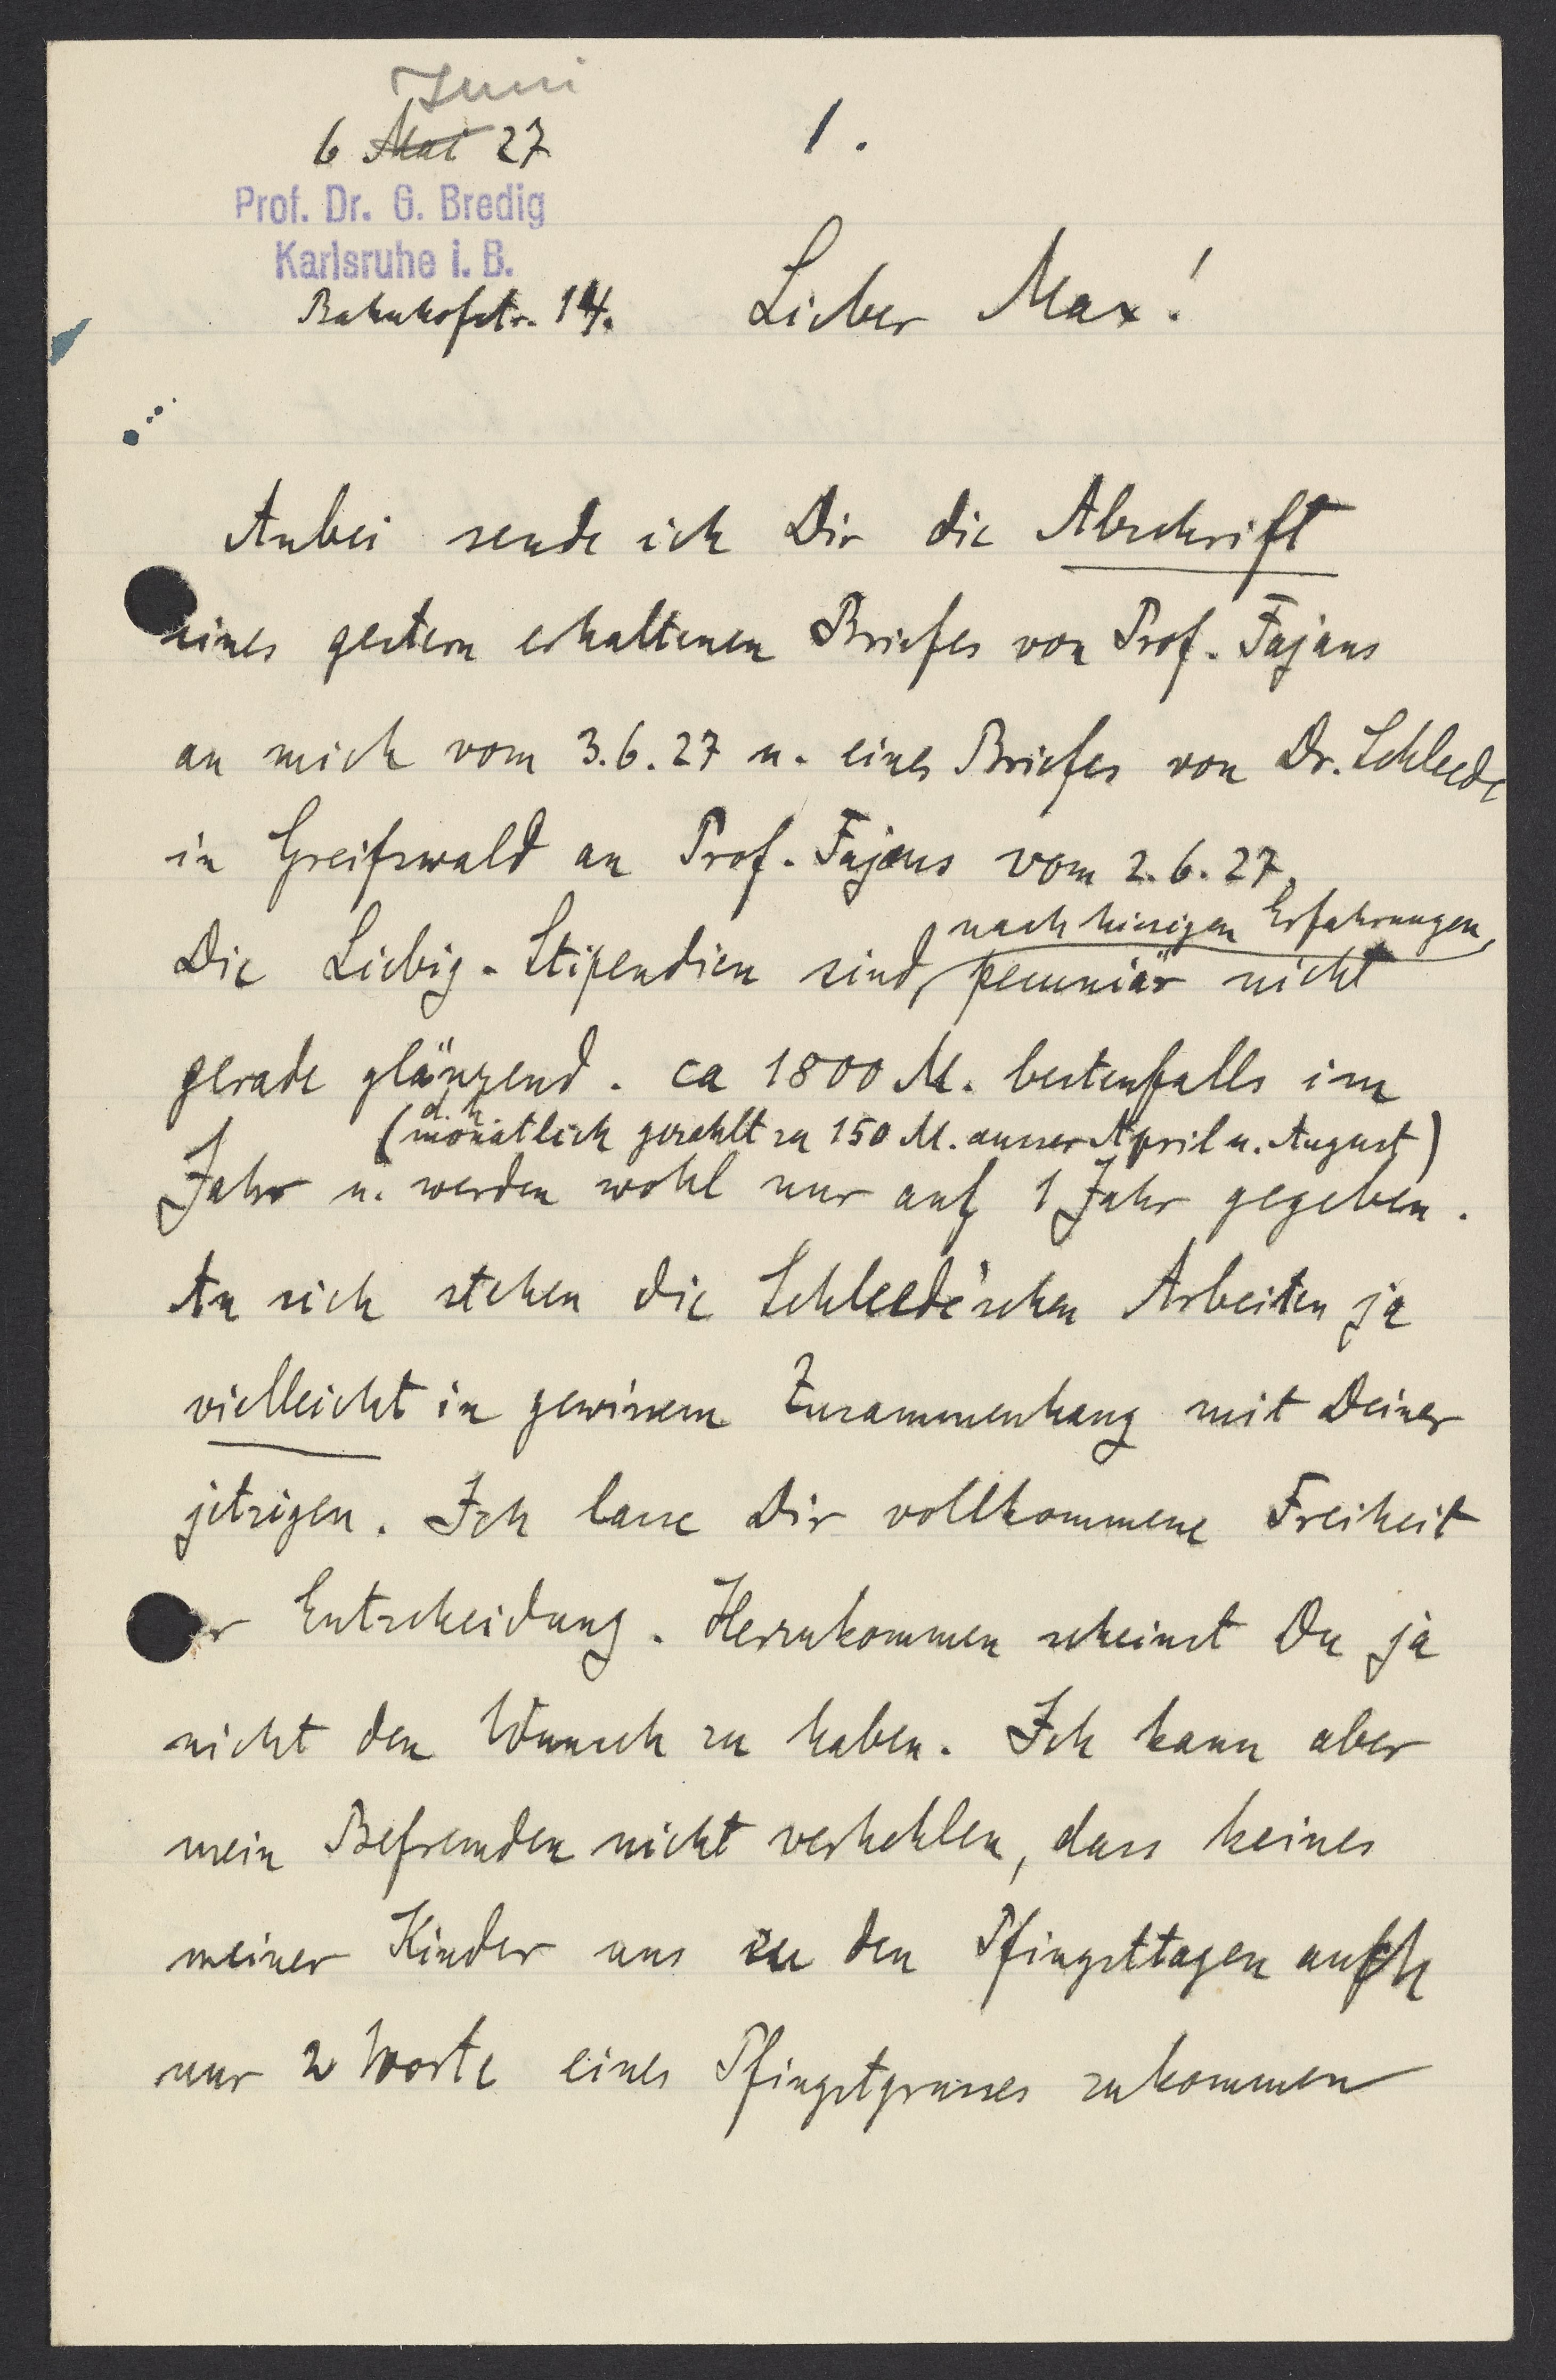 Juni
6 Mai 27
1.
Prof. Dr. G. Bredig
Karlsruhe i. B.
Bahnhofstr. 14.
Lieber Max!
Anbei sende ich Dir die Abschrift
eines gestern erhaltenen Briefes von Prof. Fajans
an mich vom 3.6.27 u. eines Briefes von Dr. Schleede
in Greifswald an Prof. Fajans vom 2.6.27.
nach hiesigen Erfahrungen,
Die Liebig-Stipendien sind, pecuniär nicht
gerade glänzend. ca 1800 M. bestenfalls im
d. h.
(monatlich gezahlt zu 150 M. ausser April u. August)
Jahr u. werden wohl nur auf 1 Jahr gegeben.
An sich stehen die Schleede'schen Arbeiten ja
vielleicht in gewissem Zusammenhang mit Deiner
jetzigen. Ich lasse Dir vollkommene Freiheit
der Entscheidung. Herzukommen scheinst Du ja
nicht den Wunsch zu haben. Ich kann aber
mein Befremden nicht verhehlen, dass keines
meiner Kinder uns zu den Pfingsttagen auch
nur 2 Worte eines Pfingstgrusses zukommen